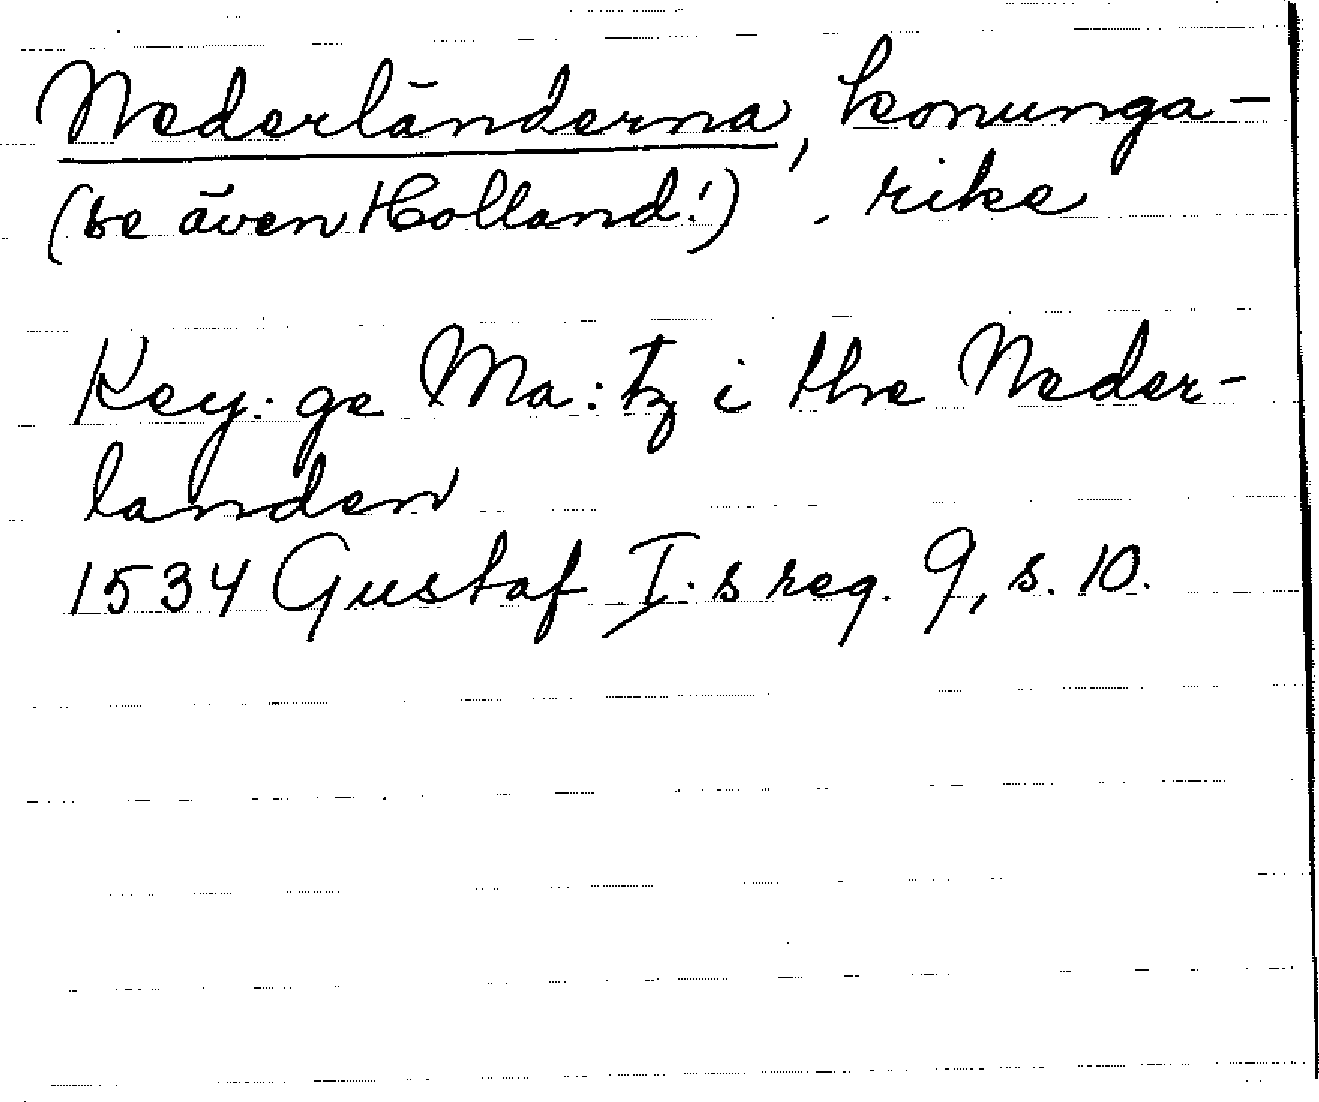 Nederländerna, konunga-
(se även Holland!) . rike
Key: ge Ma: tz i the Neder-
landen
1534 Gustaf I:s reg. 9, s. 10.